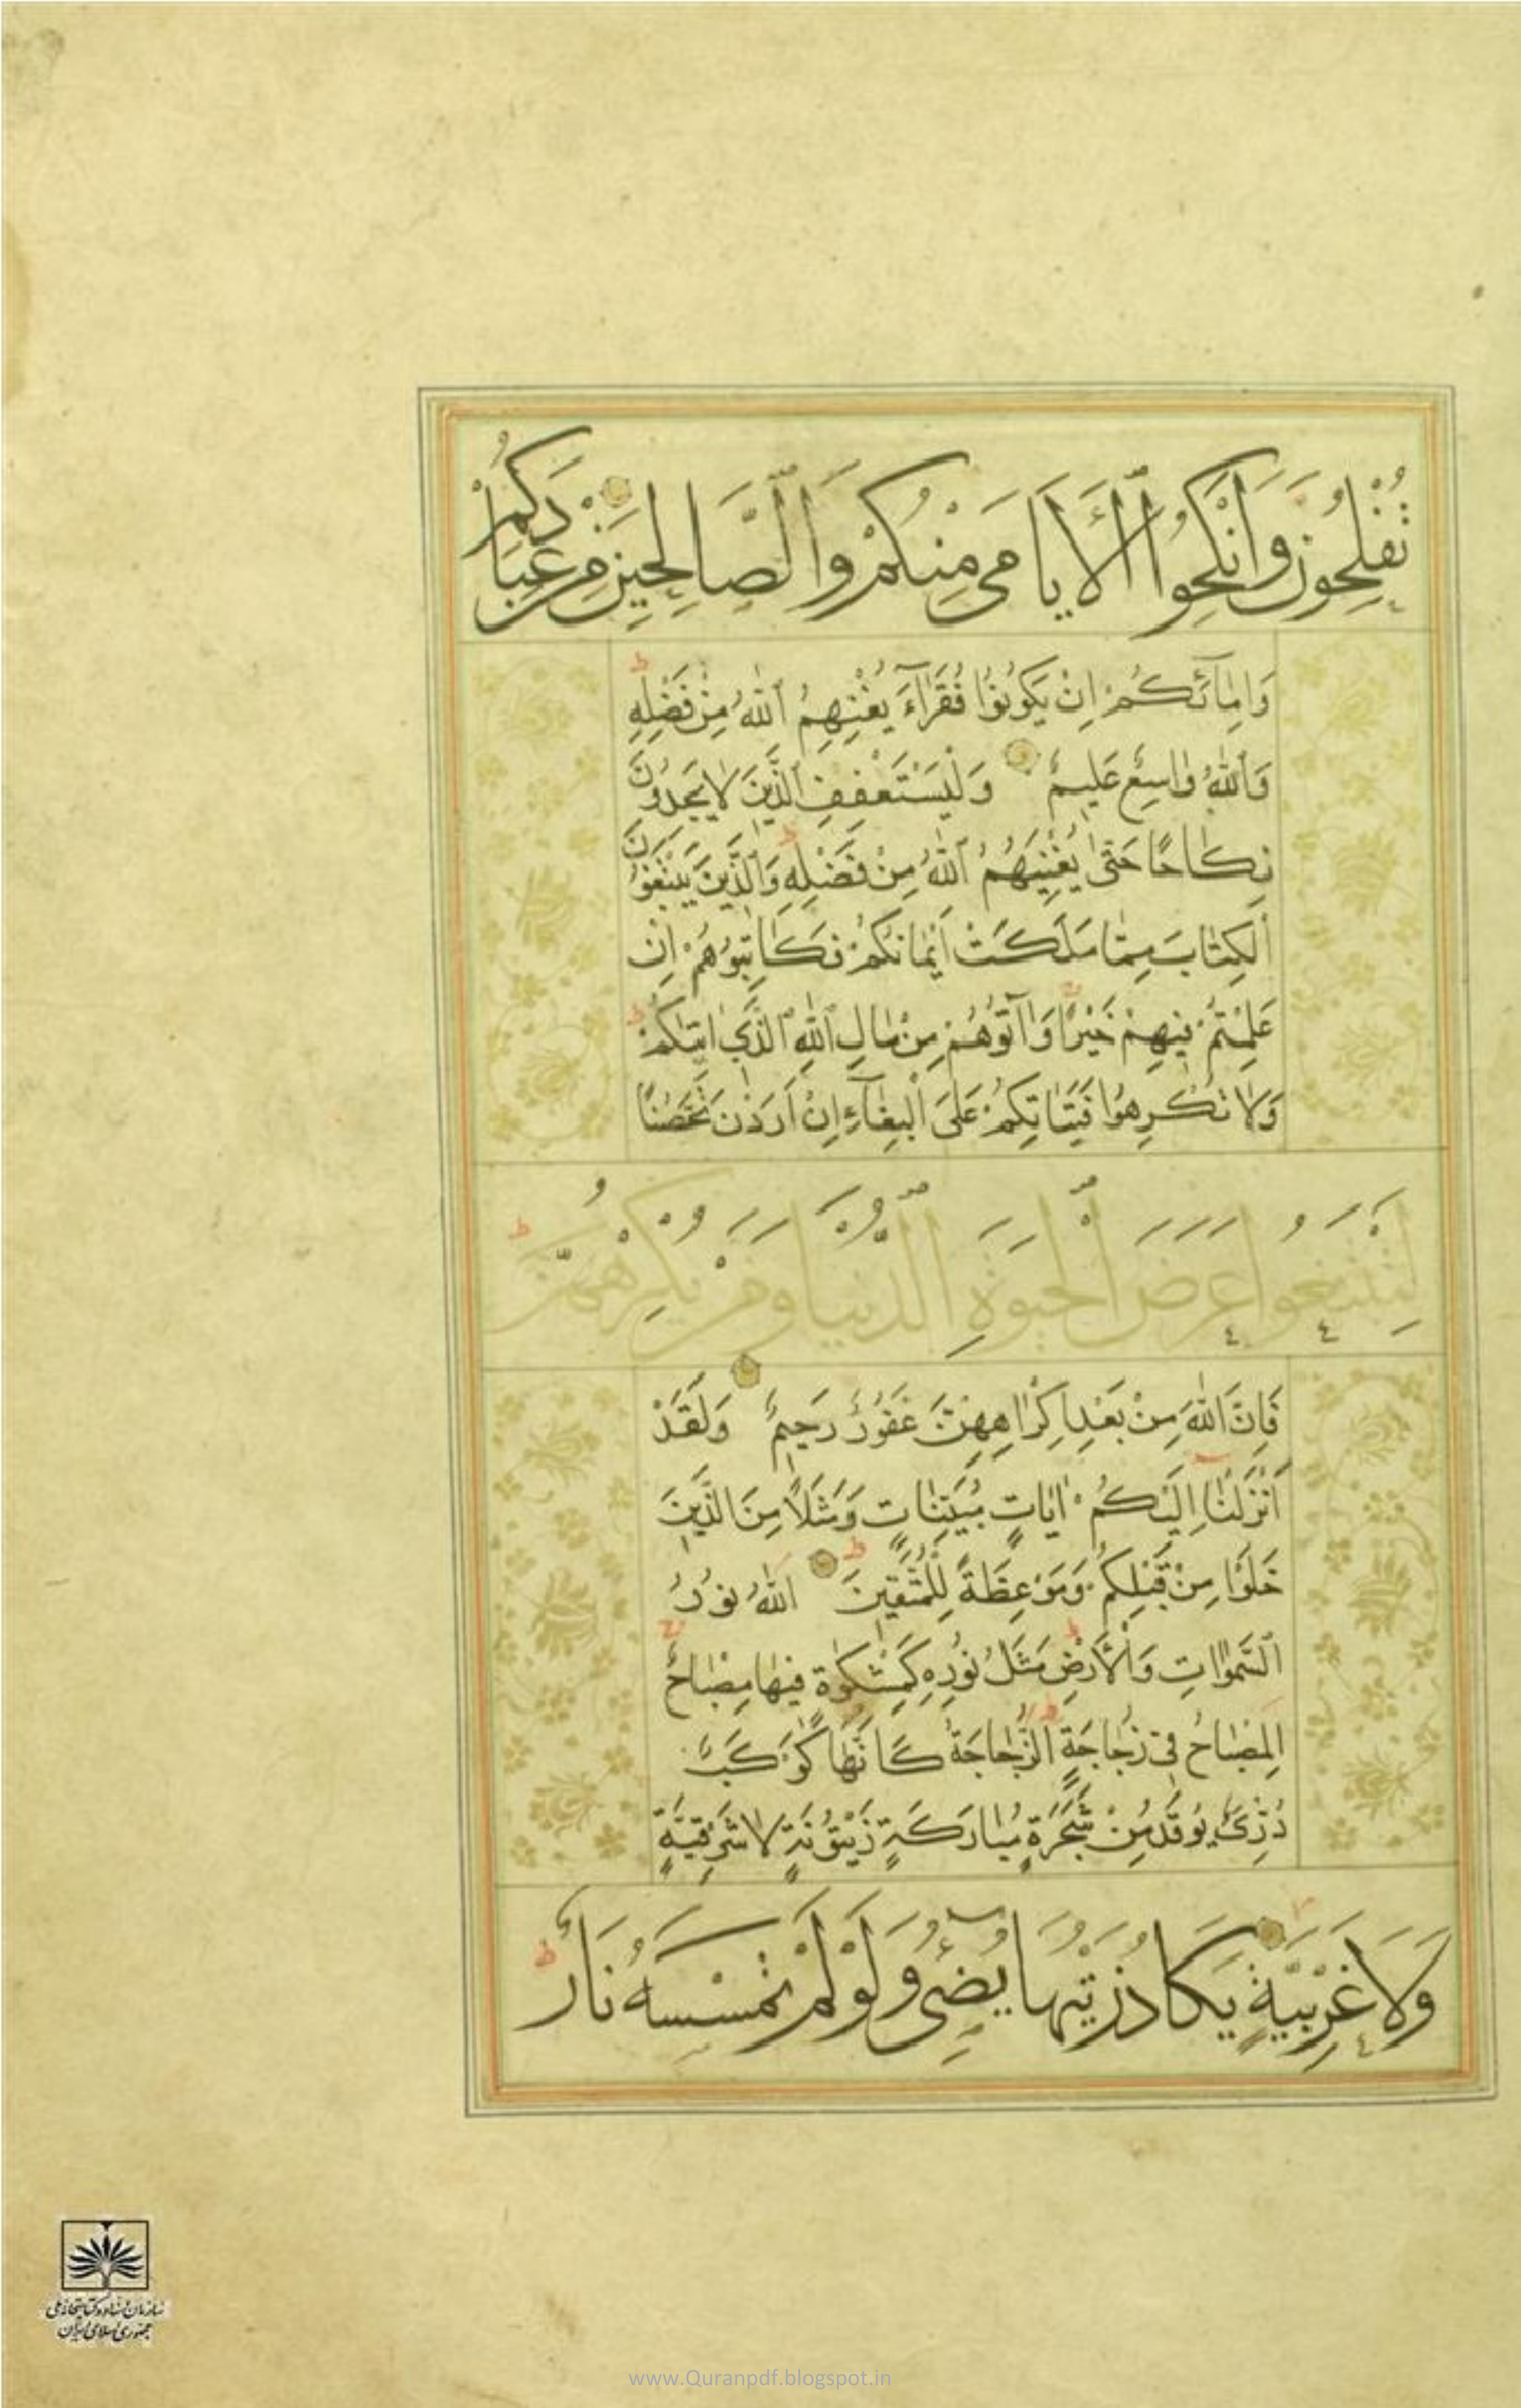 تُفْلِحُونَ وَاَنْكِحُوا ٱلْاَيَامٰى مِنْكُمْ وَٱلصَّالِحِينَ مِنْ عِبَادِكُمْ
وَاِمٰٓائِكُمْ اِنْ يَكُونُوا فُقَرٰٓاءَ يُغْنِهِمُ ٱللّٰهُ مِنْ فَضْلِهِ
وَٱللّٰهُ وٰاسِعٌ عَلِيمٌ وَلْيَسْتَعْفِفِ ٱلَّذِينَ لٰا يَجِدُونَ
نِكٰاحًا حَتّٰى يُغْنِيَهُمُ ٱللّٰهُ مِنْ فَضْلِهِ وَٱلَّذِينَ يَبْتَغُونَ
ٱلْكِتٰابَ مِمّٰا مَلَكَتْ اَيْمٰانُكُمْ فَكٰاتِبُوهُمْ اِنْ
عَلِمْتُمْ فِيهِمْ خَيْرًا وَاٰتُوهُمْ مِنْ مٰالِ ٱللّٰهِ ٱلَّذِي اٰتٰيكُمْ
وَلٰا تُكْرِهُوا فَتَيٰاتِكُمْ عَلَى ٱلْبِغٰٓاءِ اِنْ اَرَدْنَ تَحَصُّنًا
لِتَبْتَغُوا عَرَضَ ٱلْحَيٰوةِ ٱلدُّنْيَا وَمَنْ يُكْرِهْهُنَّ
فَاِنَّ ٱللّٰهَ مِنْ بَعْدِ اِكْرٰاهِهِنَّ غَفُورٌ رَحِيمٌ وَلَقَدْ
اَنْزَلْنٰا اِلَيْكُمْ اٰيٰاتٍ مُبَيِّنٰاتٍ وَمَثَلًا مِنَ ٱلَّذِينَ
خَلَوْا مِنْ قَبْلِكُمْ وَمَوْعِظَةً لِلْمُتَّقِينَ ٱللّٰهُ نُورُ
ٱلسَّمٰوٰاتِ وَٱلْاَرْضِ مَثَلُ نُورِهِ كَمِشْكٰوةٍ فِيهٰا مِصْبٰاحٌ
ٱلْمِصْبٰاحُ فِي زُجٰاجَةٍ ٱلزُّجٰاجَةُ كَاَنَّهٰا كَوْكَبٌ
دُرِّيٌّ يُوقَدُ مِنْ شَجَرَةٍ مُبٰارَكَةٍ زَيْتُونَةٍ لٰا شَرْقِيَّةٍ
وَلَا غَرْبِيَّةٍ يَكَادُ زَيْتُهَا يُضِيٓءُ وَلَوْ لَمْ تَمْسَسْهُ نَارٌ
سازمان اسناد و کتابخانه ملی
جمهوری اسلامی ایران
www.Quranpdf.blogspot.in